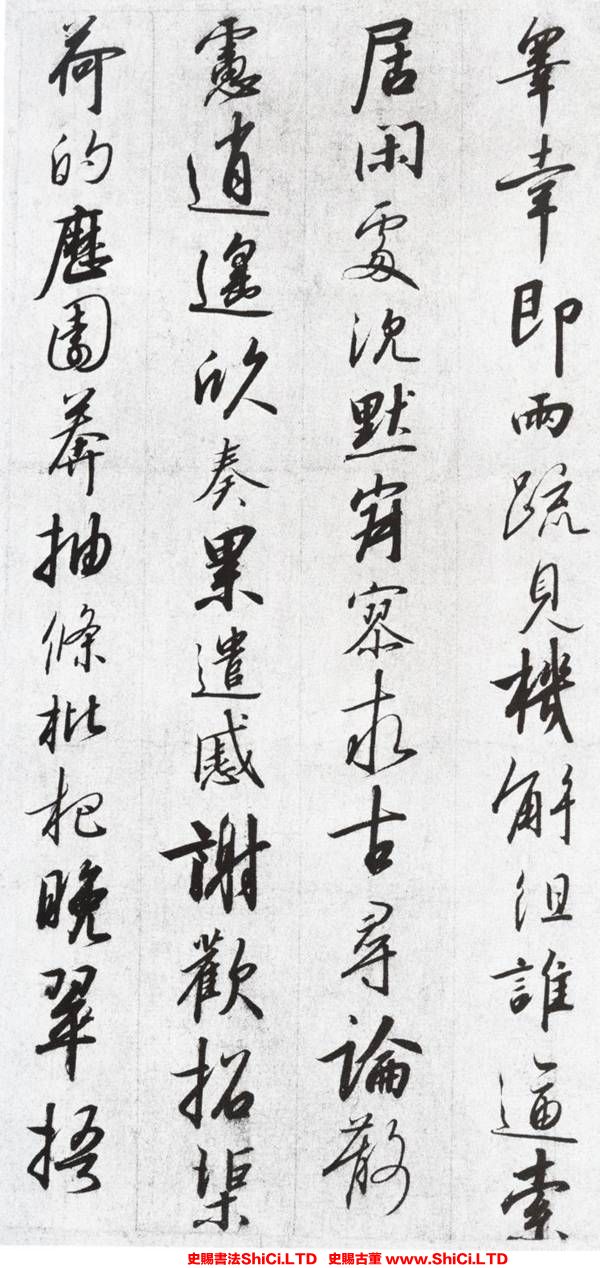 皐幸即兩疏見機解組誰逼索
居閑處沈默寂寥求古尋論散
慮逍遙欣奏累遣慼謝歡招渠
荷的歷園莽抽條枇杷晚翠梧
史賜書法ShiCi.LTD 史賜古董 www.ShiCi.LTD